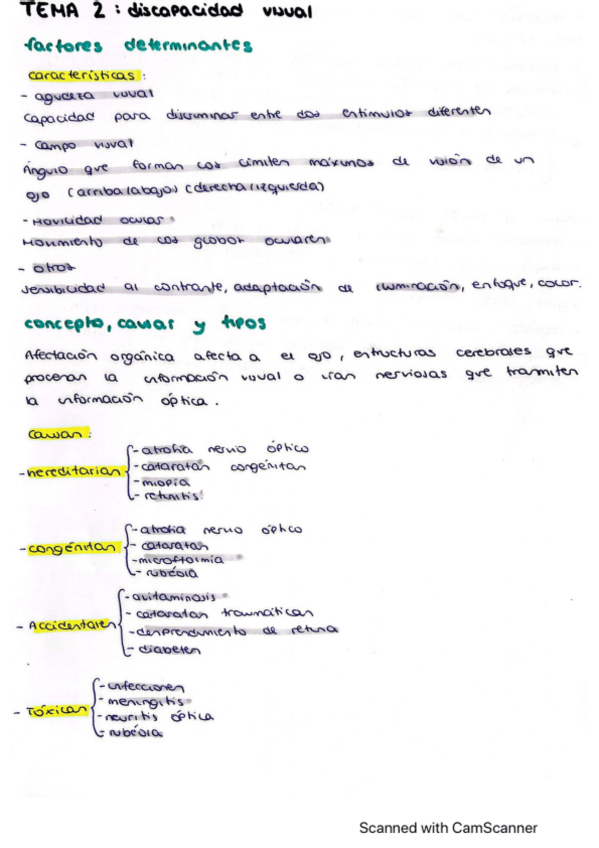 TEMA 2 : discapacidad visual
factores determinantes
características :
- agudeza visual
capacidad para discriminar entre dos estímulos diferentes
- campo visual
Ángulo que forman los límites máximos de visión de un
ojo (arriba/abajo) (derecha/izquierda)
- Movilidad ocular
Movimiento de los globos oculares
- otros
sensibilidad al contraste, adaptación de iluminación, enfoque, color.
concepto, causas y tipos
Afectación orgánica afecta a el ojo, estructuras cerebrales que
procesan la información visual o vías nerviosas que transmiten
la información óptica.
causas :
- hereditarias
- atrofia nervio óptico
- cataratas congénitas
- miopía
- retinitis
- congénitas
- atrofia nervio óptico
- cataratas
- microftalmia
- rubéola
- Accidentales
- avitaminosis
- cataratas traumáticas
- desprendimiento de retina
- diabetes
- Tóxicas
- infecciones
- meningitis
- neuritis óptica
- rubéola
Scanned with CamScanner